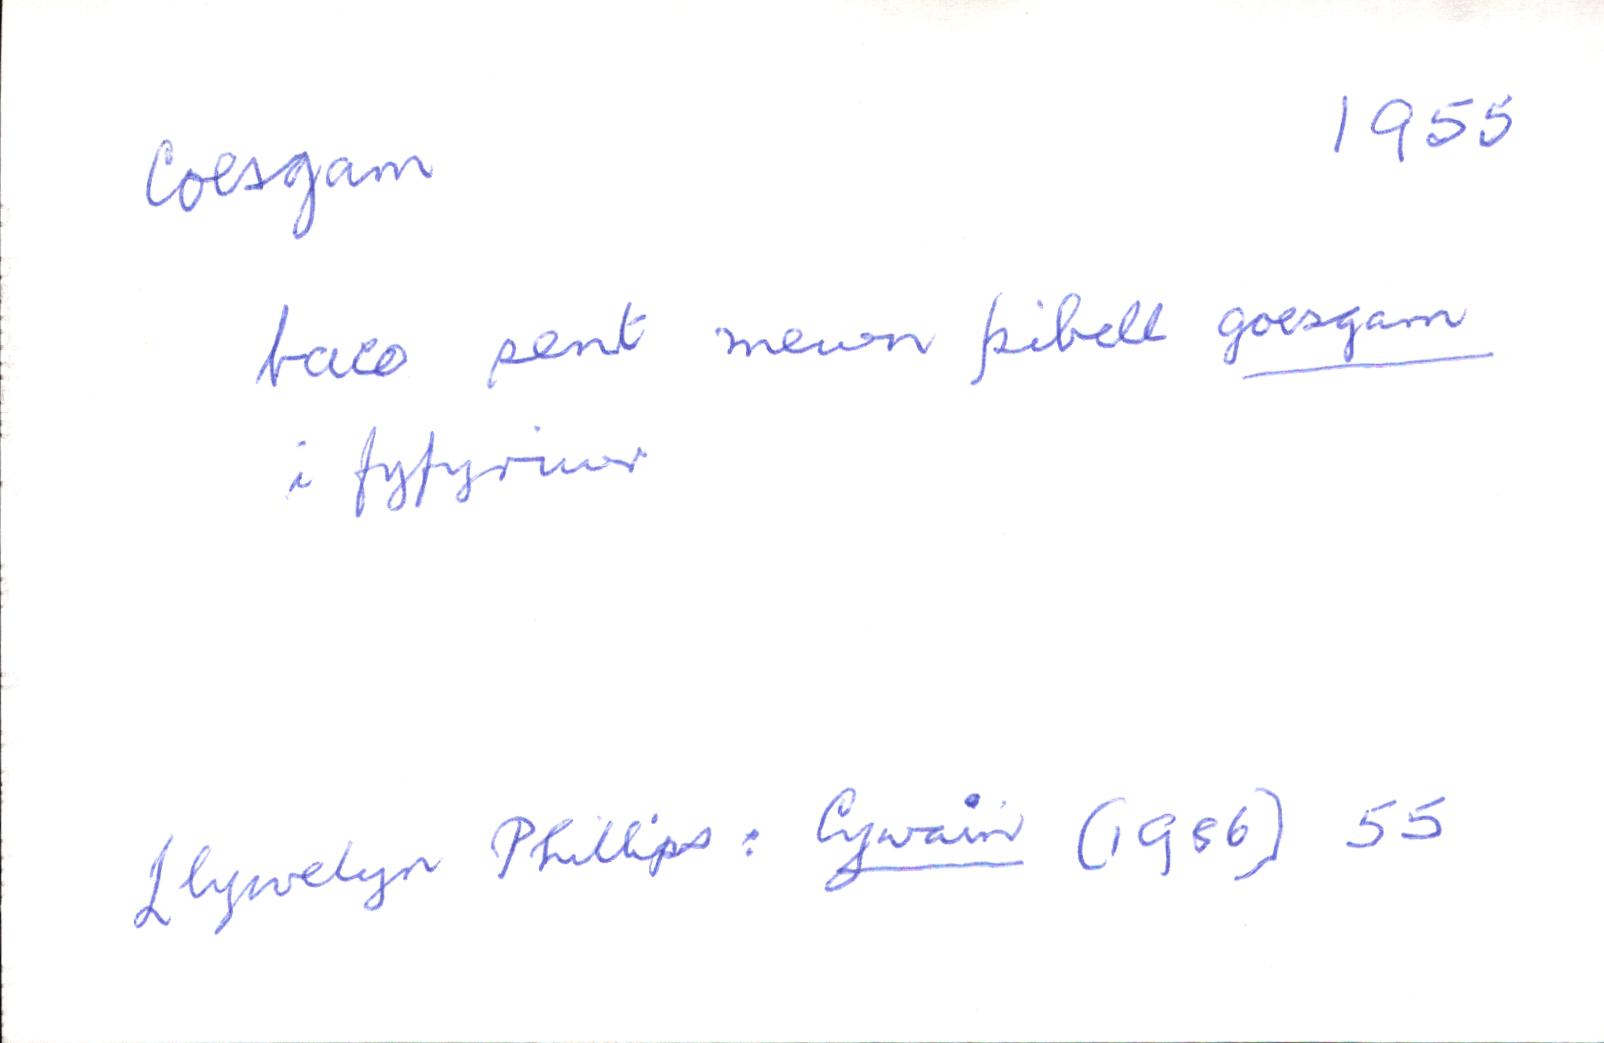 Coesgam 1955
baco sent mewn pibell goesgam
i fyfyriwr
Llywelyn Phillips : Cywain (1986) 55